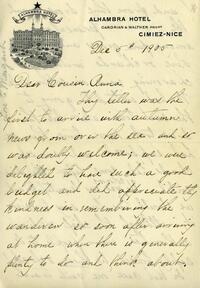 ALHAMBRA HOTEL
ALHAMBRA HOTEL
CIMIEZ-NICE
Dec 5th 1905
Dear Cousin Anna
Thy letter was the
first to arrive with autumn
news from over the sea and it
was doubly welcome; we were
delighted to have such a good
budget and did appreciate thy
kindness in remembering the
wanderers so soon after arriving
at home when there is generally
plenty to do and think about.